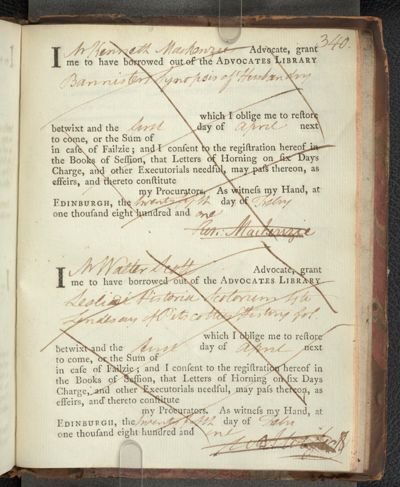 340.
I Mr Kenneth Mackenzie Advocate, grant
me to have borrowed out of the ADVOCATES LIBRARY
Bannister's Synopsis of Husbandry
which I oblige me to reſtore
betwixt and the first day of April next
to come, or the Sum of
in caſe of Failzie; and I conſent to the regiſtration hereof in
the Books of Seſſion, that Letters of Horning on ſix Days
Charge, and other Executorials needful, may paſs thereon, as
effeirs, and thereto conſtitute
my Procurators. As witneſs my Hand, at
EDINBURGH, the day of Febry
one thouſand eight hundred and one
Ken. Mackenzie
I Mr Walter Scott Advocate, grant
me to have borrowed out of the ADVOCATES LIBRARY
Leslie Historia Scotorum 4to
Lindesay of Pitscotties History fol.
which I oblige me to reſtore
betwixt and the first day of April next
to come, or the Sum of
in caſe of Failzie; and I conſent to the regiſtration hereof in
the Books of Seſſion, that Letters of Horning on ſix Days
Charge, and other Executorials needful, may paſs thereon, as
effeirs, and thereto conſtitute
my Procurators. As witneſs my Hand, at
EDINBURGH, the day of Febry
one thouſand eight hundred and one